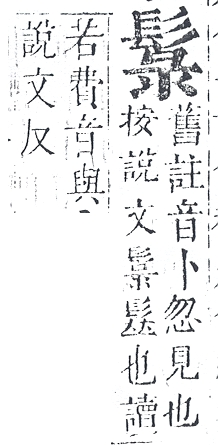 舊註音卜忽見也
按說文也讀
若費音與
說文反